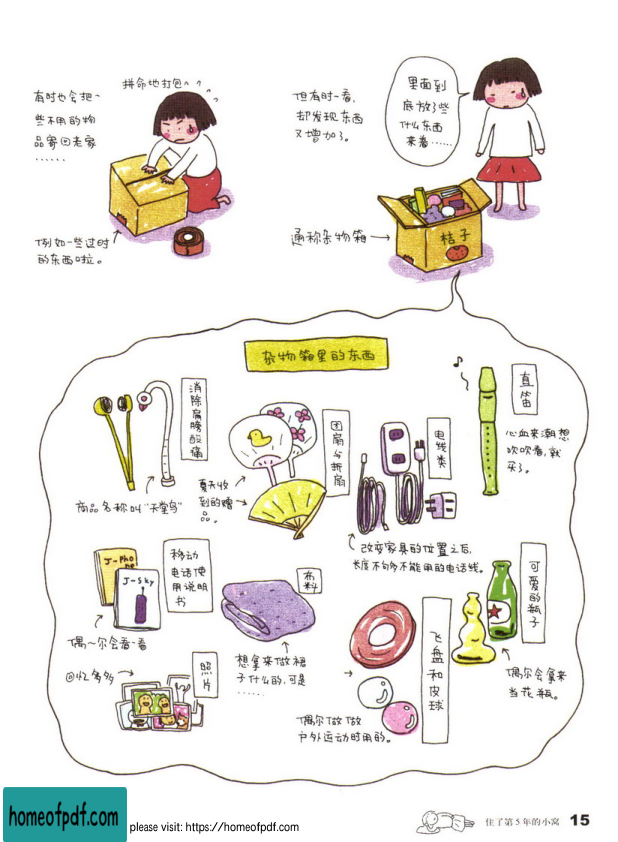 有时也会把一
些不用的物
品寄回老家
……
拼命地打包
例如一些过时
的东西啦。
但有时一看,
却发现东西
又增加了。
里面到
底放了些
什么东西
来着……
通称杂物箱
桔子
杂物箱里的东西
消除肩膀酸痛
商品名称叫“天堂鸟”
团扇与折扇
夏天收
到的赠
品。
电线类
改变家具的位置之后,
长度不够不能用的电话线。
直笛
心血来潮想
吹吹看,就
买了。
移动
电话使
用说明
书
J-Pho
ne
J-Sky
偶尔会看一看
布料
想拿来做裙
子什么的,可是
……
飞盘和皮球
偶尔做做
户外运动时用的。
可爱的瓶子
偶尔会拿来
当花瓶。
照片
homeofpdf.com
please visit: https://homeofpdf.com
住了第5年的小窝
15